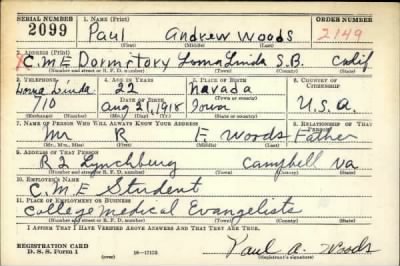 SERIAL NUMBER 1. NAME (Print) ORDER NUMBER
2099 Paul Andrew Woods 2149
(First) (Middle) (Last)
2. ADDRESS (Print)
X C.M.E Dormrtory Loma Linda S.B. Calif
(Number and street or R. F. D. number) (Town) (County) (State)
3. TELEPHONE 4. AGE IN YEARS 5. PLACE OF BIRTH 6. COUNTRY OF CITIZENSHIP
Loma Linda 22 Navada
710 DATE OF BIRTH (Town or county)
Aug 21, 1918 Iowa U.S.A.
(Mo.) (Day) (Yr.) (State or country)
7. NAME OF PERSON WHO WILL ALWAYS KNOW YOUR ADDRESS 8. RELATIONSHIP OF THAT PERSON
Mr R E Woods Father
(Mr., Mrs., Miss) (First) (Middle) (Last)
9. ADDRESS OF THAT PERSON
R 2 Lynchburg Campbell Va
(Number and street or R. F. D. number) (Town) (County) (State)
10. EMPLOYER'S NAME
C.M.E Student
11. PLACE OF EMPLOYMENT OR BUSINESS
College Medical Evangelists
(Number and street or R. F. D. number) (Town) (County) (State)
I AFFIRM THAT I HAVE VERIFIED ABOVE ANSWERS AND THAT THEY ARE TRUE.
REGISTRATION CARD
D. S. S. Form 1 16-17105 Paul A. Woods
(Registrant's signature)